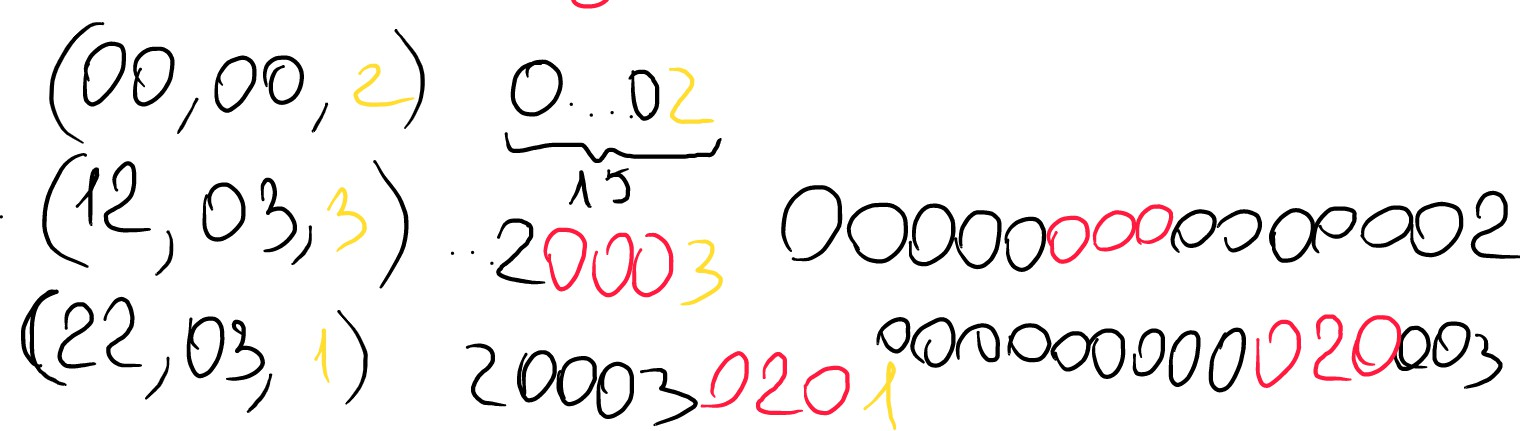 (00,00,2) 0...02
15
(12,03,3) ...20003 000000000000002
(22,03,1) 200030201 000000000020003